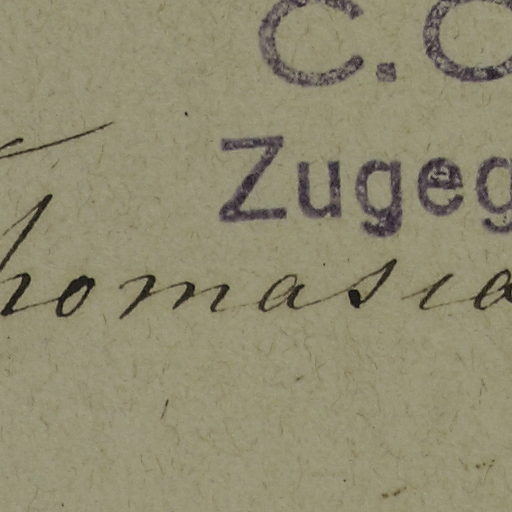 C.C
Zugeg
Thomasia